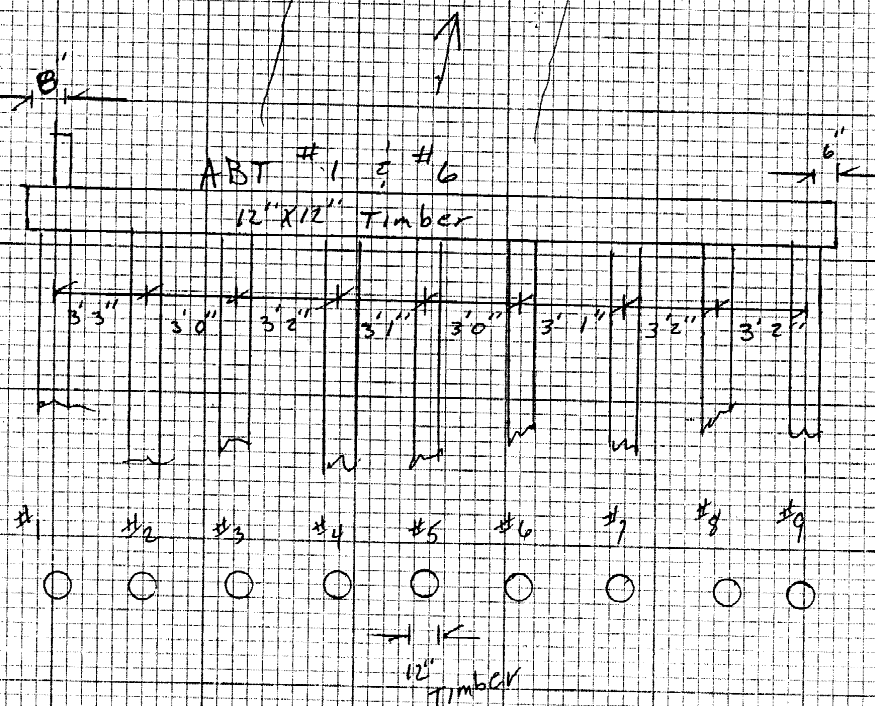 8"
6"
ABT #1 & #6
12"X12" Timber
3'3" 3'0" 3'2" 3'1" 3'0" 3'1" 3'2" 3'2"
#1 #2 #3 #4 #5 #6 #7 #8 #9
12"
Timber